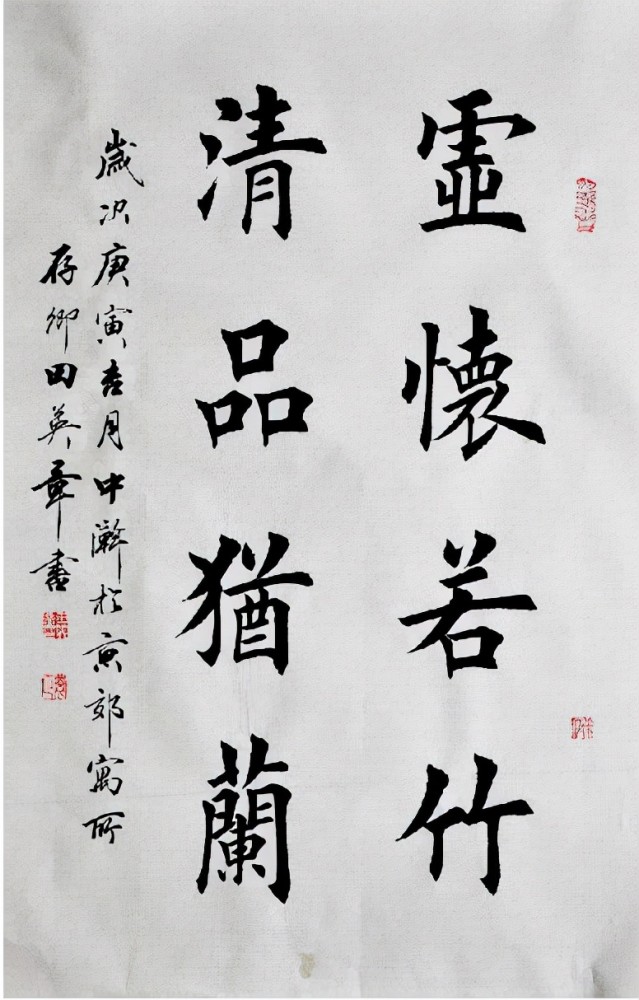 虛懷若竹
清品猶蘭
歲次庚寅杏月中澣於京郊寓所
存卿田英章書